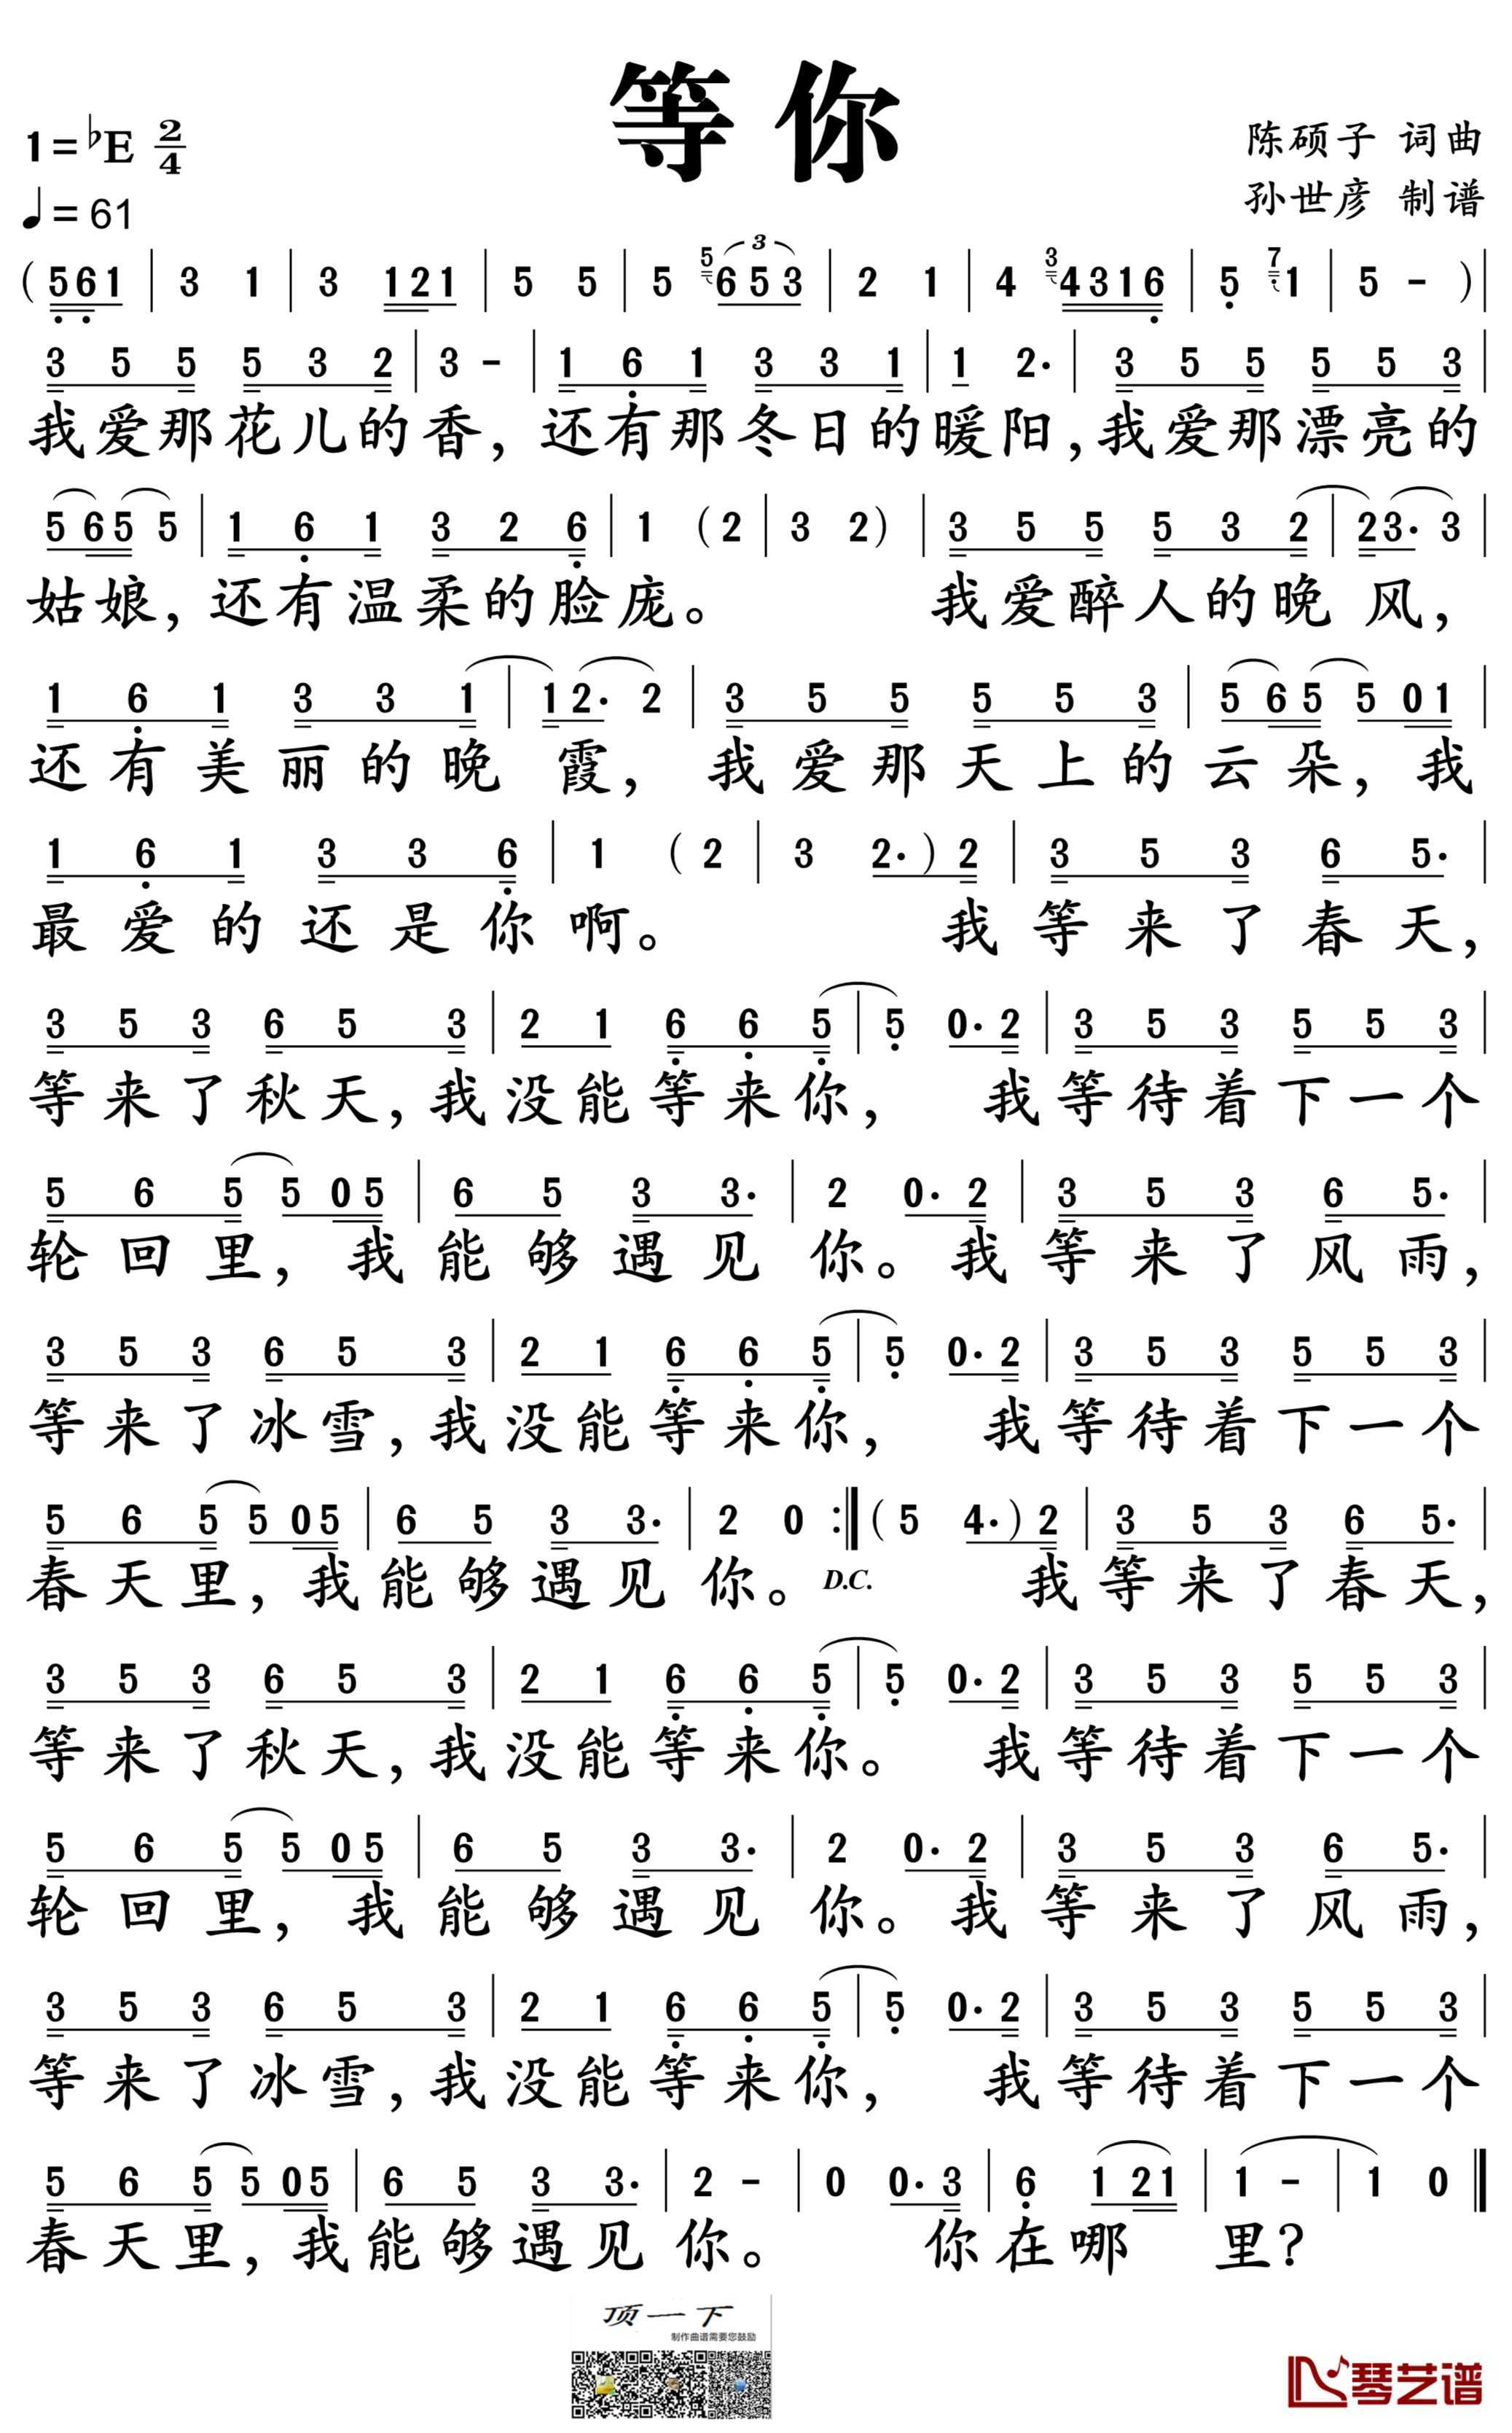 等你
1=♭E 2/4
♩=61
陈硕子 词曲
孙世彦 制谱
(561 | 3 1 | 3 121 | 5 5 | 5 5 3 653 | 2 1 | 4 3 4316 | 5 7 1 | 5 - ) |
3 5 5 5 3 2 | 3 - | 1 6 1 3 3 1 | 1 2. | 3 5 5 5 5 3 |
我爱那花儿的香，还有那冬日的暖阳，我爱那漂亮的
5 65 5 | 1 6 1 3 2 6 | 1 (2 | 3 2) | 3 5 5 5 3 2 | 23. 3 |
姑娘，还有温柔的脸庞。 我爱醉人的晚风，
1 6 1 3 3 1 | 12. 2 | 3 5 5 5 5 3 | 5 65 5 01 |
还有美丽的晚霞，我爱那天上的云朵，我
1 6 1 3 3 6 | 1 (2 | 3 2.) 2 | 3 5 3 6 5. |
最爱的还是你啊。 我等来了春天，
3 5 3 6 5 3 | 2 1 6 6 5 | 5 0. 2 | 3 5 3 5 5 3 |
等来了秋天，我没能等来你， 我等待着下一个
5 6 5 5 05 | 6 5 3 3. | 2 0. 2 | 3 5 3 6 5. |
轮回里，我能够遇见你。我等来了风雨，
3 5 3 6 5 3 | 2 1 6 6 5 | 5 0. 2 | 3 5 3 5 5 3 |
等来了冰雪，我没能等来你， 我等待着下一个
5 6 5 5 05 | 6 5 3 3. | 2 0 :‖ (5 4.) 2 | 3 5 3 6 5. |
春天里，我能够遇见你。D.C. 我等来了春天，
3 5 3 6 5 3 | 2 1 6 6 5 | 5 0. 2 | 3 5 3 5 5 3 |
等来了秋天，我没能等来你。 我等待着下一个
5 6 5 5 05 | 6 5 3 3. | 2 0. 2 | 3 5 3 6 5. |
轮回里，我能够遇见你。我等来了风雨，
3 5 3 6 5 3 | 2 1 6 6 5 | 5 0. 2 | 3 5 3 5 5 3 |
等来了冰雪，我没能等来你， 我等待着下一个
5 6 5 5 05 | 6 5 3 3. | 2 - | 0 0. 3 | 6 1 21 | 1 - | 1 0 ‖
春天里，我能够遇见你。 你在哪里？
顶一下
制作曲谱需要您鼓励
琴艺谱